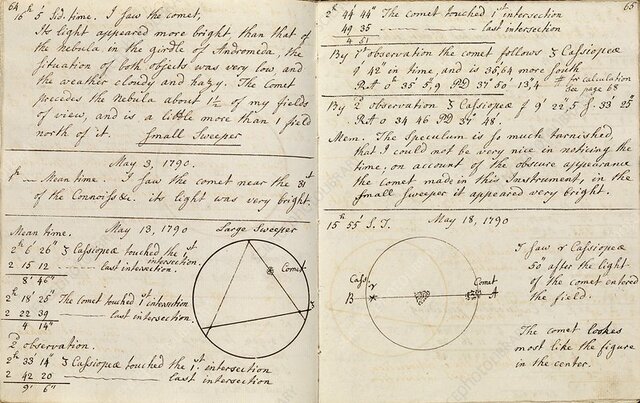 64
16h 5' Sid. time. I saw the comet,
Its light appeared more bright than that of
the nebula in the girdle of Andromeda, the
situation of both objects was very low, and
the weather cloudy and hazy. The Comet
precedes the Nebula about 1½ of my fields
of view, and is a little more than 1 field
north of it. Small Sweeper
May 3, 1790.
Mean time. I saw the comet near the 31st
of the Connoiss&c. its light was very bright.
Mean time. May 13, 1790 Large Sweeper
2h 6' 26" ʒ Cassiopeæ touched the 1st intersection.
2 15 12 last intersection.
8' 46"
2h 18' 25" The comet touched 1st intersection
2 22 39 last intersection.
4 14"
2d observation.
2h 33' 14" ʒ Cassiopeæ touched the 1st intersection
2 42 20 last intersection
9' 6"
Comet
ʒ
65
2h 44' 44" The comet touched 1st intersection
49 35 last intersection
4 51
By 1st observation the comet follows ʒ Cassiopeæ
9' 42" in time, and is 35',64 more South
RA 0h 35' 5",9 PD 37° 50' 13",4
for calculation
See page 68
By 2d observation ʒ Cassiopeæ f 9' 22",5 S. 33' 25"
RA 0 34 46 PD 37° 48'.
Mem. The Speculum is so much tarnished
that I could not be very nice in noticing the
time, on account of the obscure appearance
the comet made in this Instrument, in the
small sweeper it appeared very bright.
15h 55' S.T. May 18, 1790
Cass.
γ
B
Comet
A
I saw γ Cassiopeæ
50" after the light
of the comet entered
the field.
The comet lookes
most like the figure
in the center.